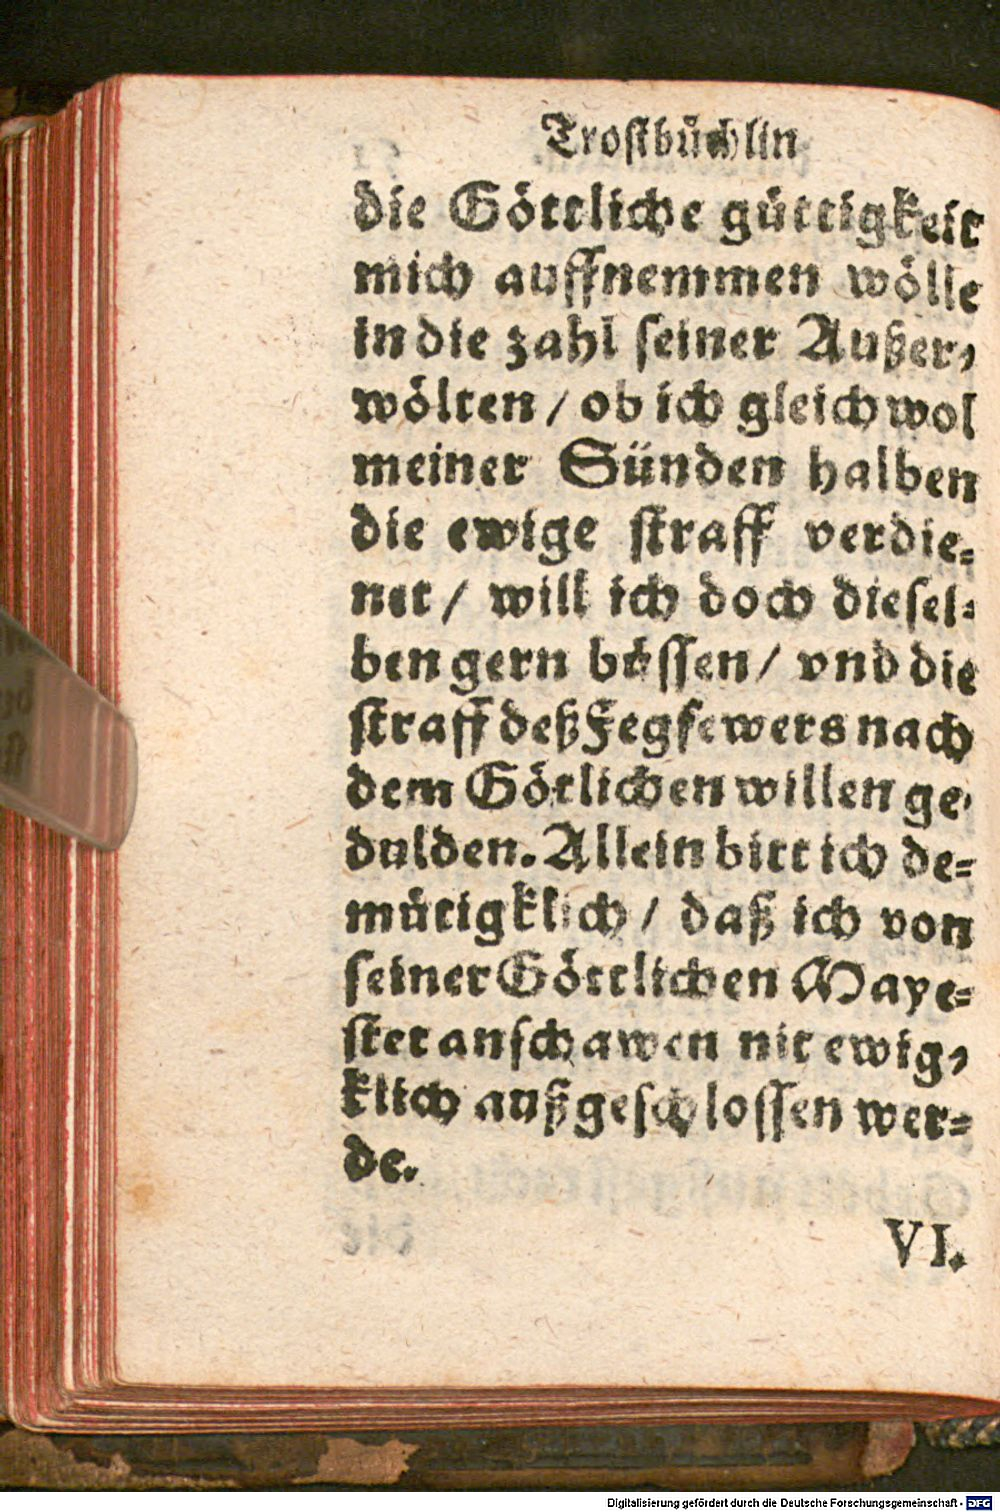 Trostbůchlin
die Göttliche güttigkeit
mich auffnemmen wölle
in die zahl seiner Außer,
wölten / ob ich gleich wol
meiner Sünden halben
die ewige straff verdie-
net / will ich doch diesel-
ben gern bůssen / vnd die
straff deß Fegfewers nach
dem Götlichen willen ge-
dulden. Allein bitt ich de-
mütigklich / daß ich von
seiner Göttlichen Maye-
stet anschawen nit ewig,
klich außgeschlossen wer-
de.
VI.
Digitalisierung gefördert durch die Deutsche Forschungsgemeinschaft - DFG